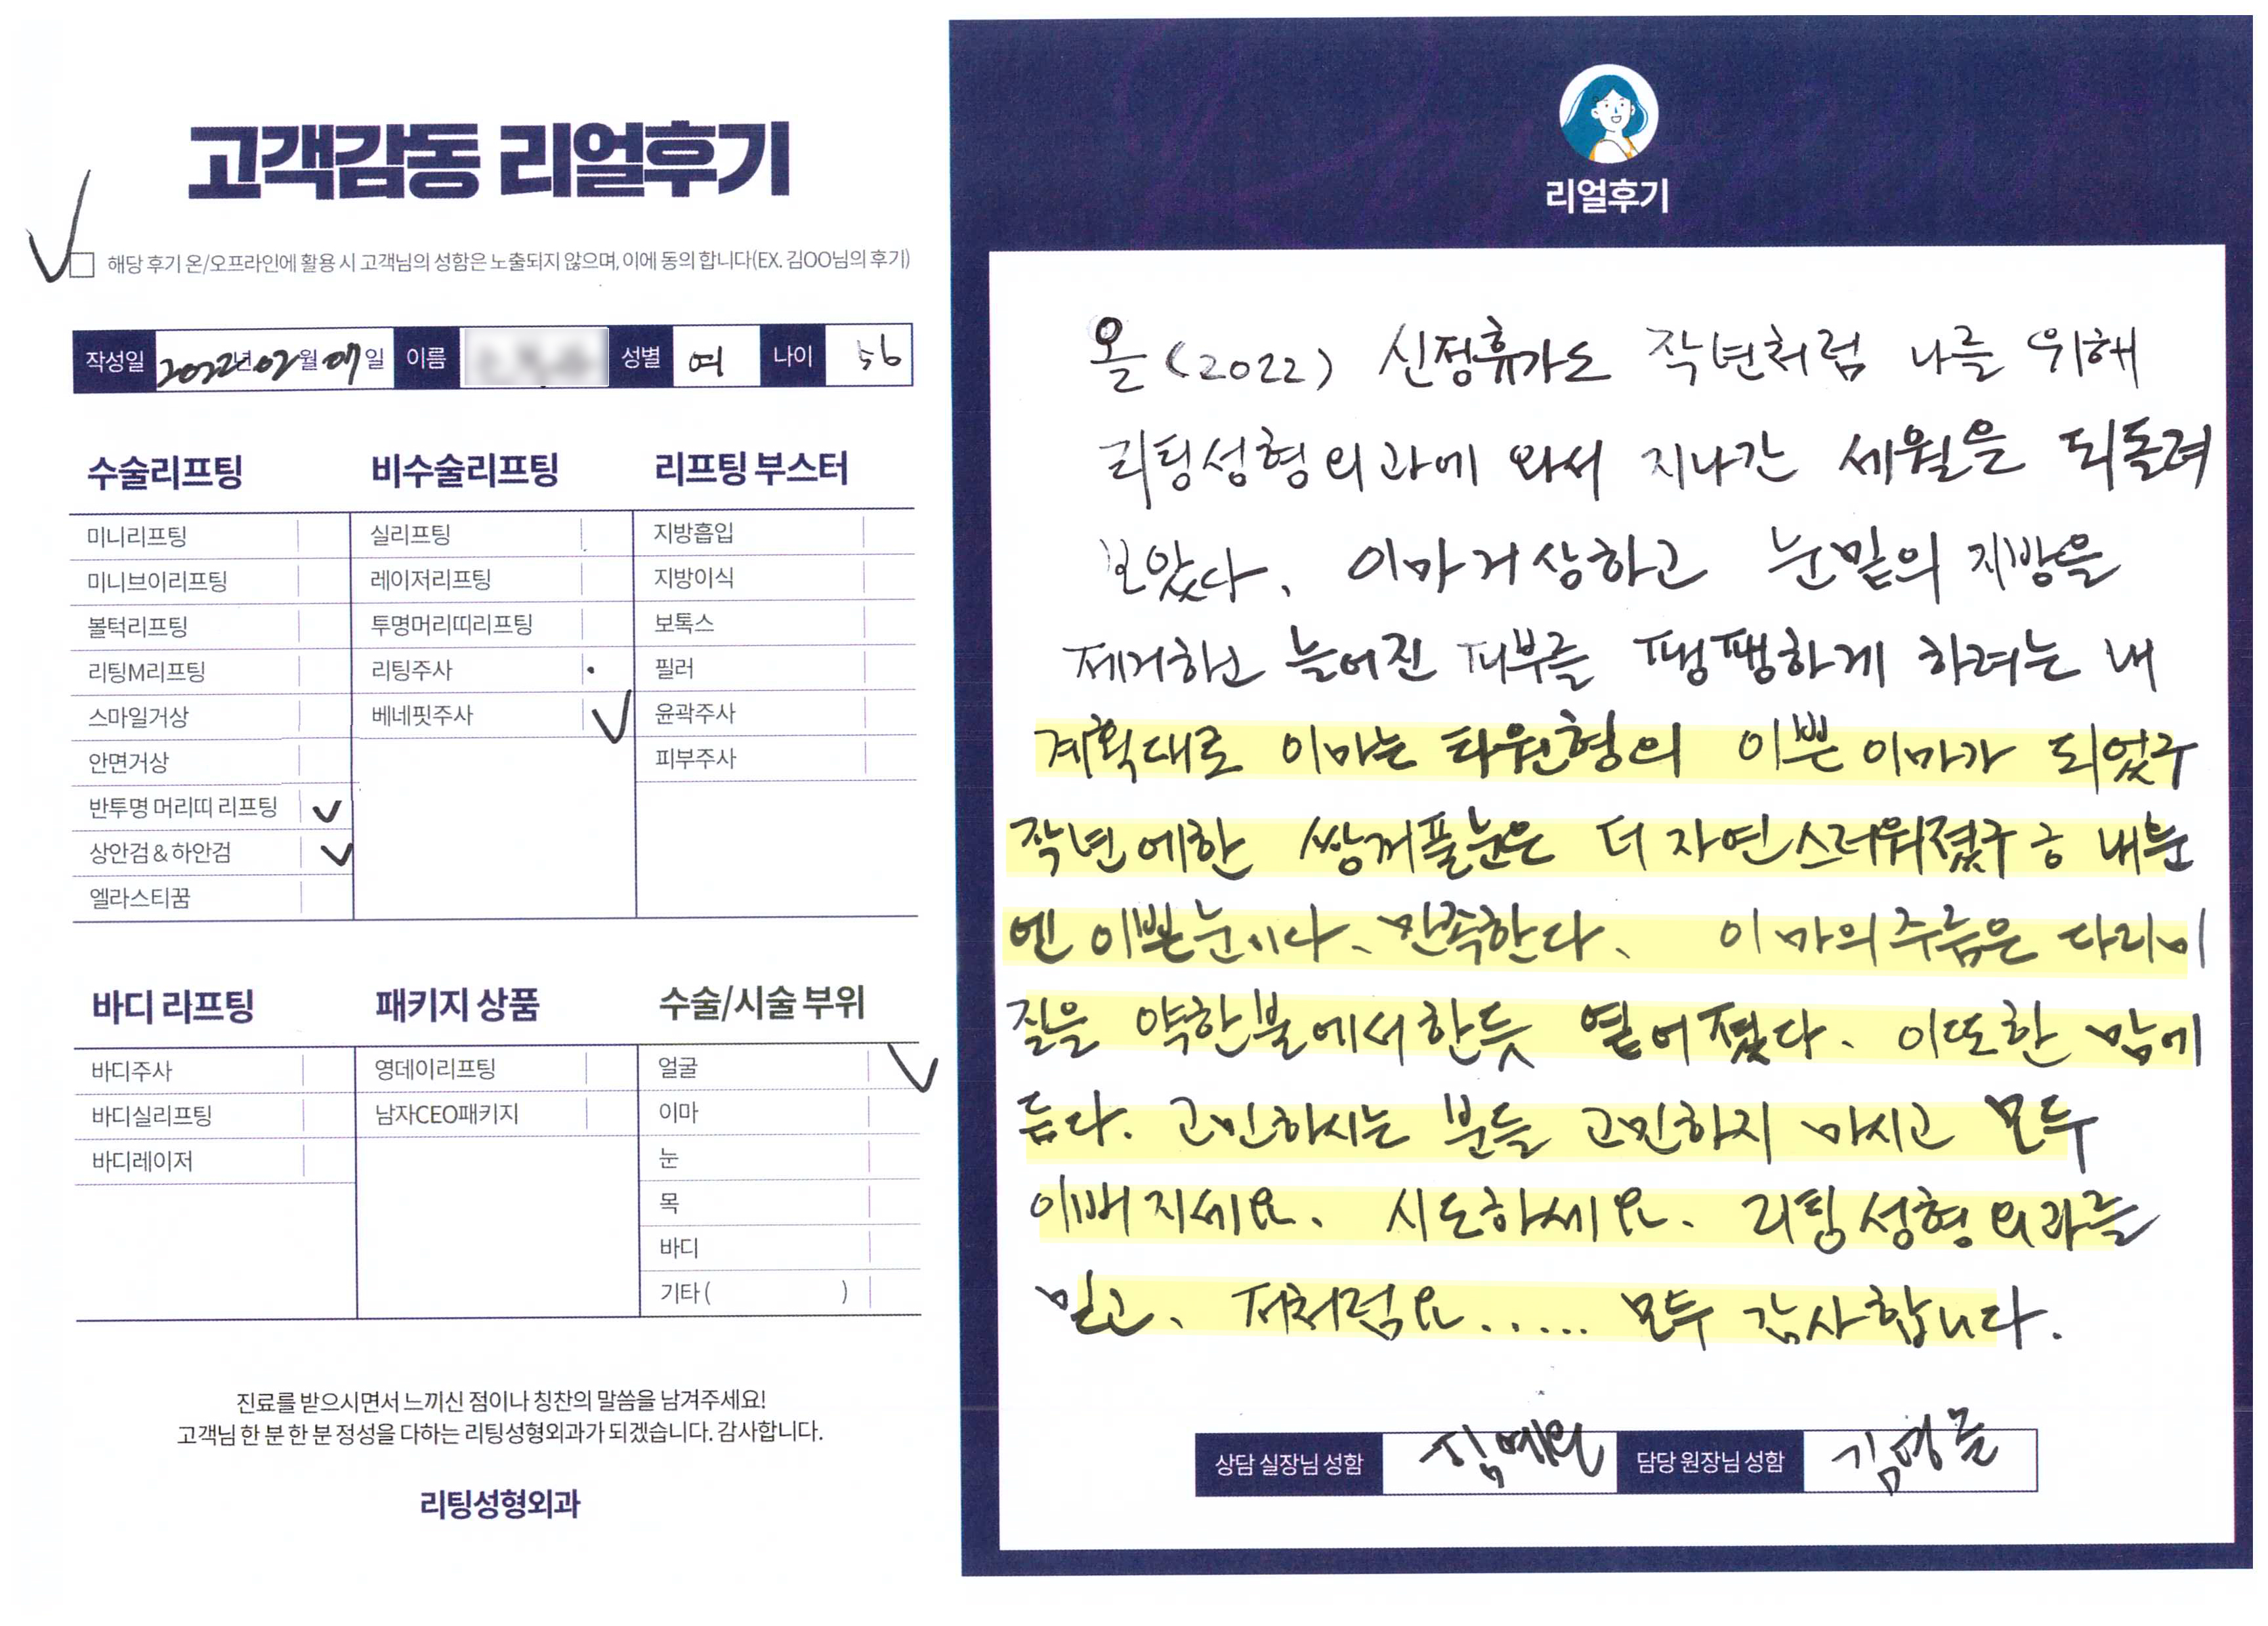 고객감동 리얼후기
해당 후기 온/오프라인에 활용 시 고객님의 성함은 노출되지 않으며, 이에 동의 합니다(EX. 김OO님의 후기)
작성일 2022년 02월 07일 이름 성별 여 나이 56
수술리프팅
미니리프팅
미니브이리프팅
볼턱리프팅
리팅M리프팅
스마일거상
안면거상
반투명 머리띠 리프팅
상안검 & 하안검
엘라스티꿈
비수술리프팅
실리프팅
레이저리프팅
투명머리띠리프팅
리팅주사
베네핏주사
리프팅 부스터
지방흡입
지방이식
보톡스
필러
윤곽주사
피부주사
바디 리프팅
바디주사
바디실리프팅
바디레이저
패키지 상품
영데이리프팅
남자CEO패키지
수술/시술 부위
얼굴
이마
눈
목
바디
기타 ( )
진료를 받으시면서 느끼신 점이나 칭찬의 말씀을 남겨주세요!
고객님 한 분 한 분 정성을 다하는 리팅성형외과가 되겠습니다. 감사합니다.
리팅성형외과
리얼후기
올 (2022) 신정휴가도 작년처럼 나를 위해
리팅성형외과에 와서 지나간 세월을 되돌려
보았다. 이마거상하고 눈밑의 지방을
제거하고 늘어진 피부를 팽팽하게 하려는 내
계획대로 이마는 타원형의 이쁜 이마가 되었구
작년에한 쌍꺼풀눈은 더 자연스러워졌구 내눈
엔 이쁜눈이다. 만족한다. 이마의주름은 다리미
질을 약한불에서한듯 옅어졌다. 이또한 맘에
듭다. 고민하시는 분들 고민하지 마시고 모두
이뻐지세요. 시도하세요. 리팅성형외과를
믿고. 저처럼요..... 모두 감사합니다.
상담 실장님 성함 담당 원장님 성함